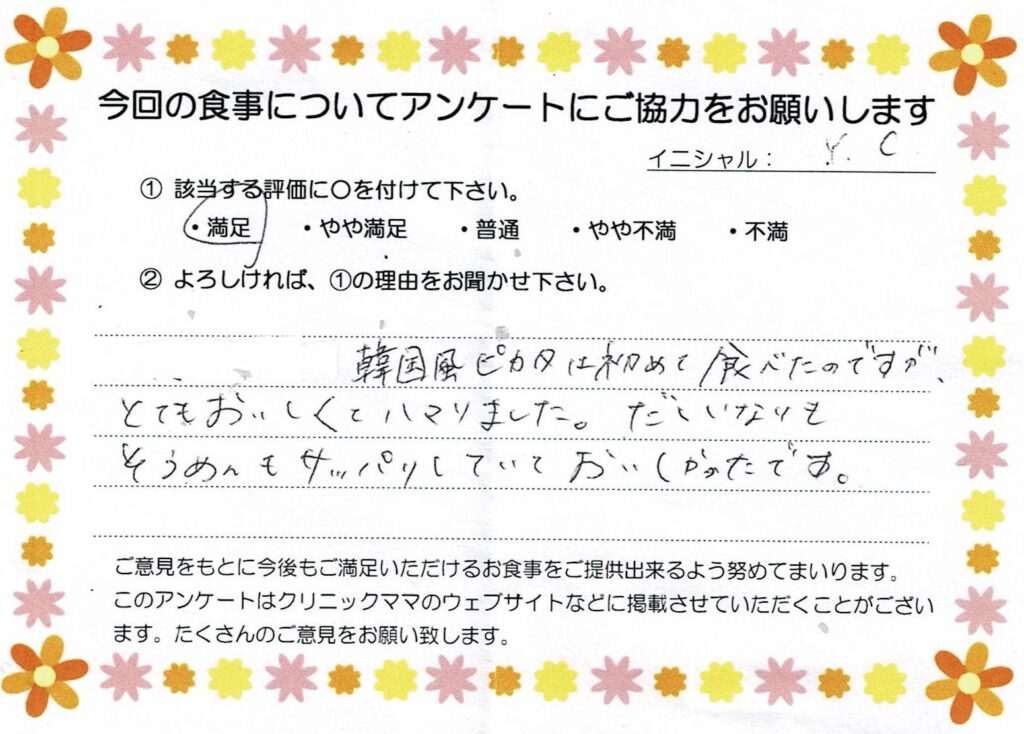 今回の食事についてアンケートにご協力をお願いします
イニシャル： Y. C
① 該当する評価に○を付けて下さい。
・満足 ・やや満足 ・普通 ・やや不満 ・不満
② よろしければ、①の理由をお聞かせ下さい。
韓国風ピカタは初めて食べたのですが、
とてもおいしくてハマりました。だしいなりも
そうめんもサッパリしていておいしかったです。
ご意見をもとに今後もご満足いただけるお食事をご提供出来るよう努めてまいります。
このアンケートはクリニックママのウェブサイトなどに掲載させていただくことがござい
ます。たくさんのご意見をお願い致します。